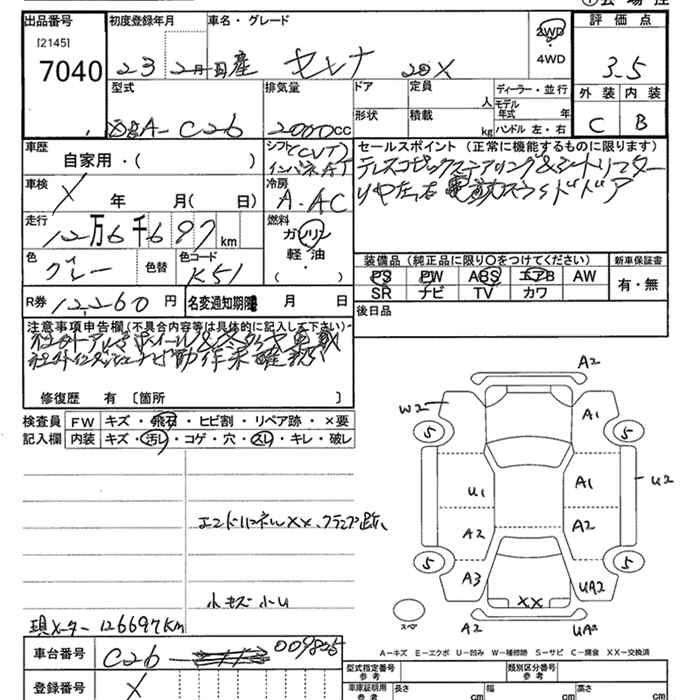 出品番号 初度登録年月 車名・グレード 評価点
[2145] 2WD
7040 23 2月 日産 セレナ 20X 4WD 3.5
型式 排気量 ドア 定員 人 ディーラー・並行 外装 内装
DBA-C26 2000cc 形状 積載 kg モデル年式 年 ハンドル 左・右 C B
車歴 シフト(CVT) セールスポイント (正常に機能するものに限ります)
自家用・( ) インパネAT テレスコピックステアリング&シートリフター
車検 冷房 リヤ左右電動スライドドア
X 年 月( 日) A.AC
走行 燃料
12万6千697km ガソリン
色 色替 色コード 軽油 装備品 (純正品に限り〇をつけてください) 新車保証書
グレー K51 ・( ) PS PW ABS エアB AW 有・無
R券 12,260円 名変通知期限 月 日 SR ナビ TV カワ
後日品
注意事項申告欄(不具合内容等は具体的に記入して下さい)
修復歴 有 〔箇所 〕
検査員 FW キズ・飛石・ヒビ割・リペア跡・×要
記入欄 内装 キズ・汚レ・コゲ・穴・スレ・キレ・破レ
A2
W2 A1
5 5
U1 A1 U2
エンドパネルXX、クランプ跡
A2 A2
5 5
A3 UA2
小キズ 小U XX
現メーター 126697km スペア A2 UA2
A=キズ E=エクボ U=凹み W=補修跡 S=サビ C=腐食 XX=交換済
車台番号 C26 - 009855
型式指定番号 参考 類別区分番号 参考
登録番号 X 車庫証明用 参考 長さ cm 幅 cm 高さ cm